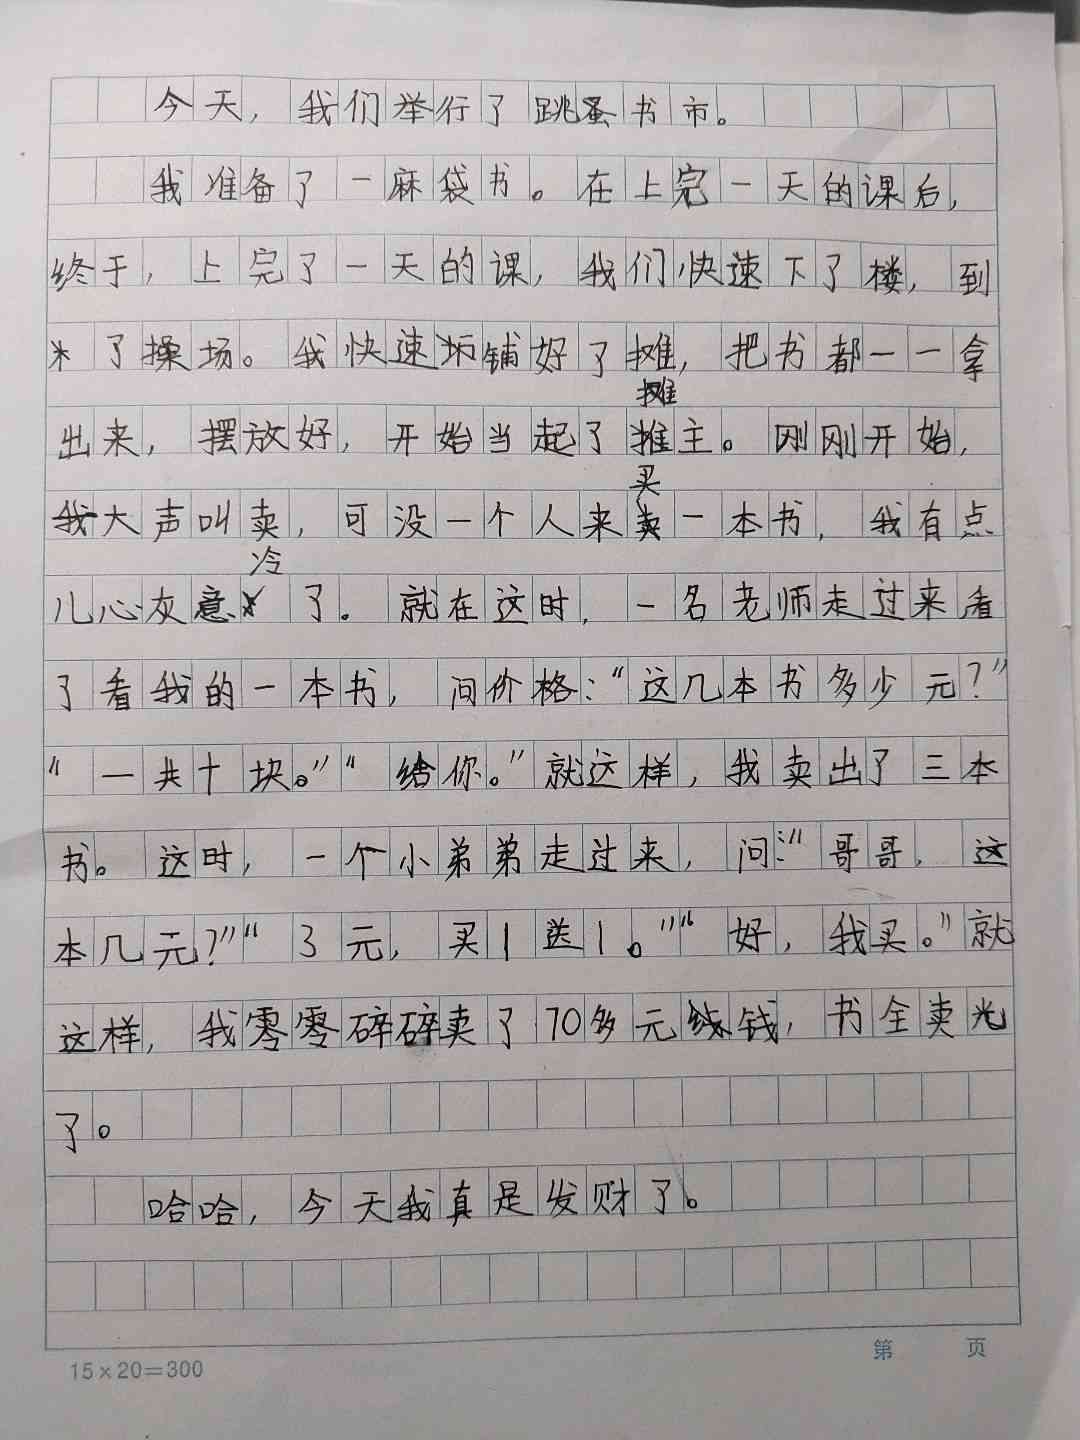 今天，我们举行了跳蚤书市。
我准备了一麻袋书。在上完一天的课后，
终于，上完了一天的课，我们快速下了楼，到
了操场。我快速铺好了摊，把书都一一拿
出来，摆放好，开始当起了摊主。刚刚开始，
我大声叫卖，可没一个人来买一本书，我有点
儿心灰意冷了。就在这时，一名老师走过来看
了看我的一本书，问价格：“这几本书多少元？”
“一共十块。”“给你。”就这样，我卖出了三本
书。这时，一个小弟弟走过来，问：“哥哥，这
本几元？”“3元，买1送1。”“好，我买。”就
这样，我零零碎碎卖了70多元钱，书全卖光
了。
哈哈，今天我真是发财了。
15×20=300
第 页